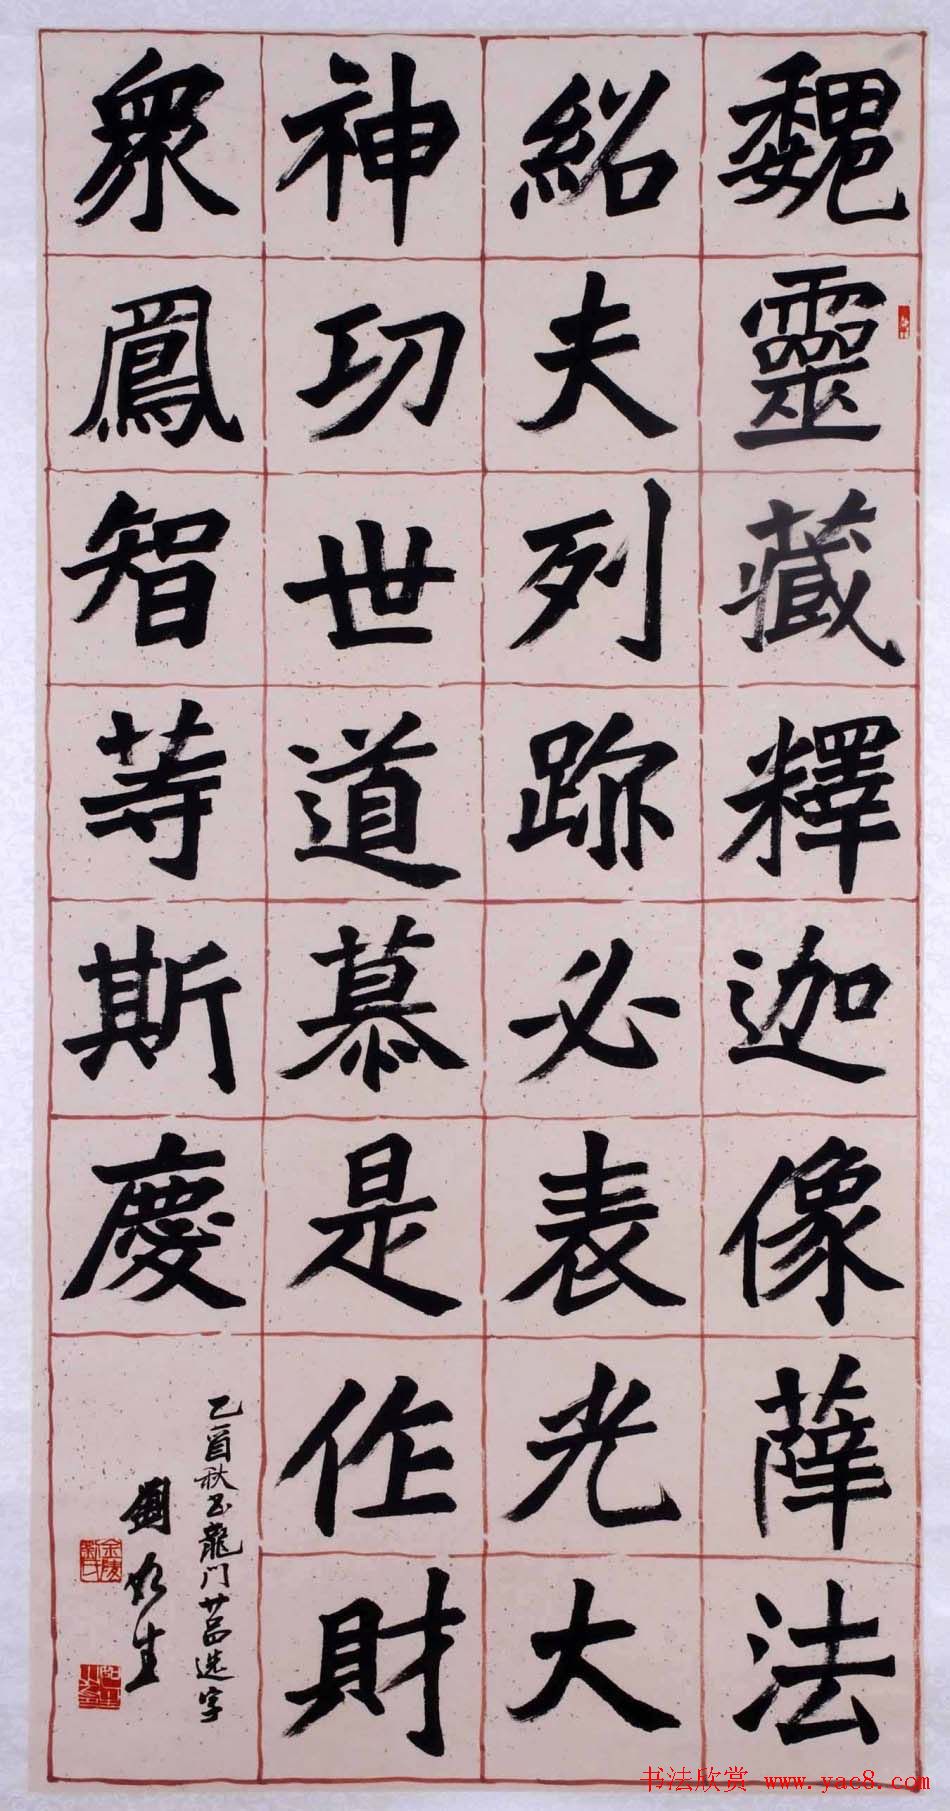 魏靈藏釋迦像薛法
紹夫列跡必表光大
神功世道慕是作財
衆鳳智等斯慶
乙酉秋书龍门廿品选字
劉
生
书法欣赏 www.yac8.com